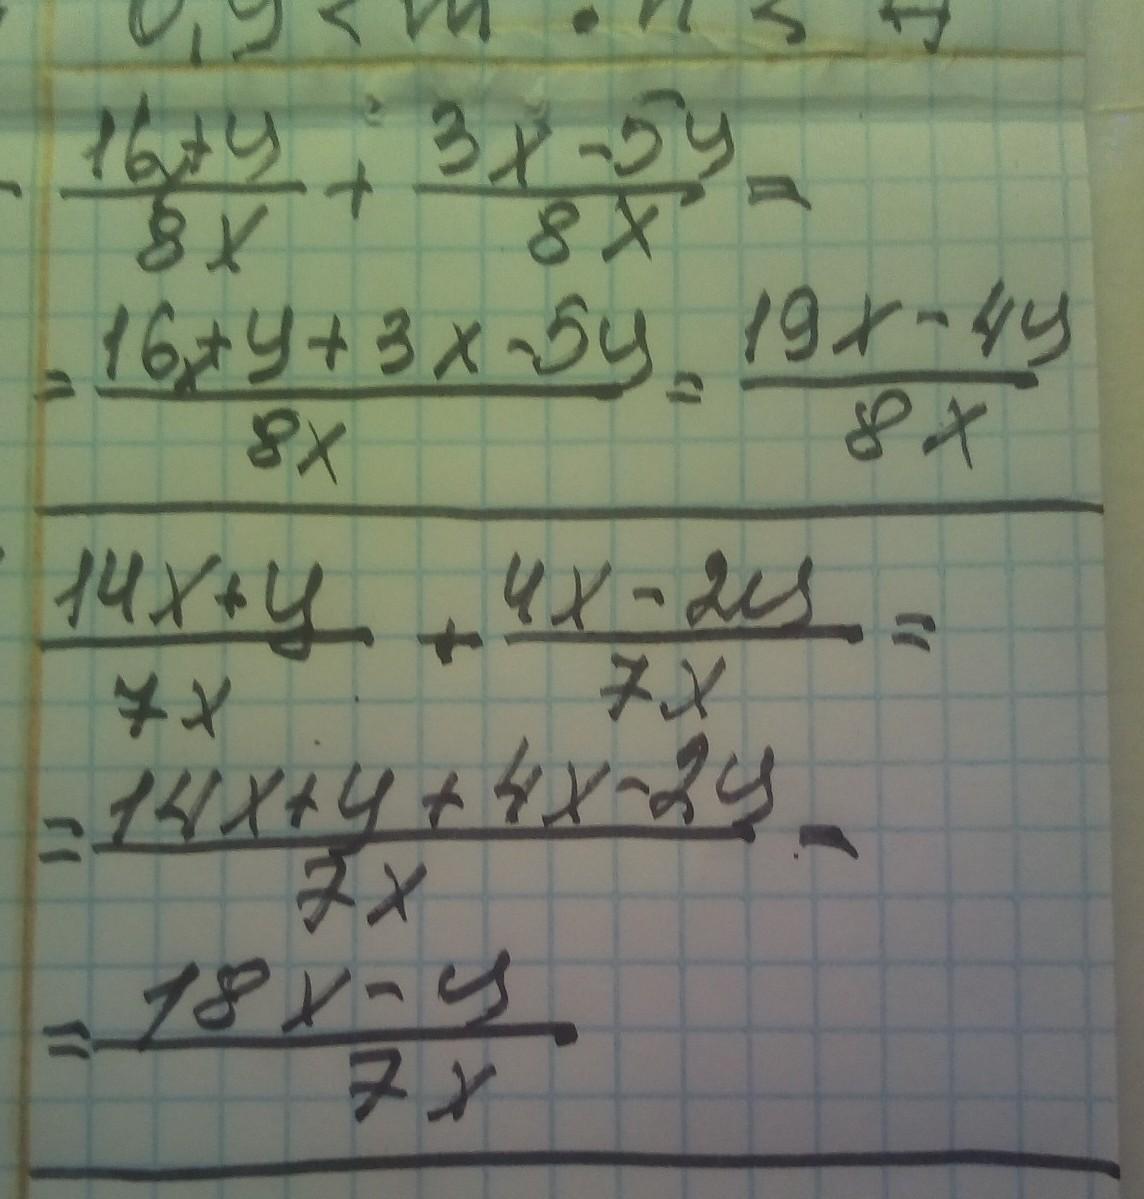 0,9 < m · n < 4
(16x+y)/(8x) + (3x-5y)/(8x) =
= (16x+y+3x-5y)/(8x) = (19x-4y)/(8x)
(14x+y)/(7x) + (4x-2y)/(7x) =
= (14x+y+4x-2y)/(7x) =
= (18x-y)/(7x)